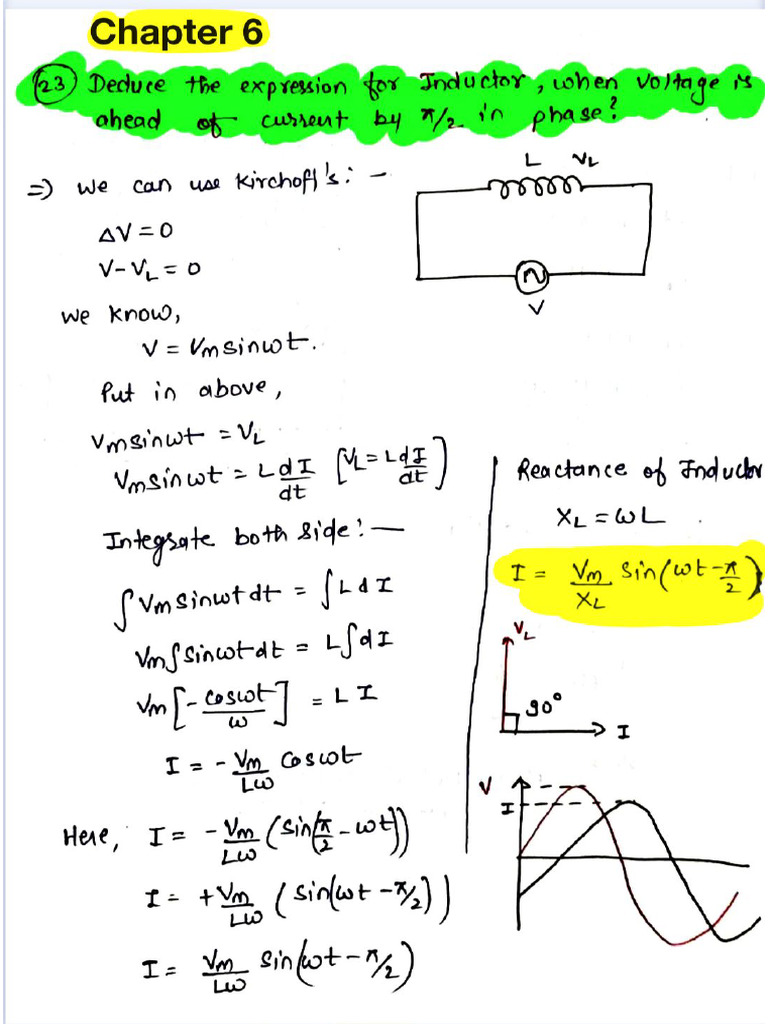 Chapter 6
(23) Deduce the expression for Inductor, when voltage is
ahead of current by π/2 in phase?
⇒ We can use Kirchoff's: -
ΔV = 0
V - V_L = 0
We know,
V = Vm sinωt.
Put in above,
Vm sinωt = V_L
Vm sinωt = L dI/dt [V_L = L dI/dt]
Integrate both side: —
∫ Vm sinωt dt = ∫ L dI
Vm ∫ sinωt dt = L ∫ dI
Vm [- cosωt/ω] = L I
I = - Vm/Lω Cosωt
Here, I = - Vm/Lω (sin(π/2 - ωt))
I = + Vm/Lω (sin(ωt - π/2))
I = Vm/Lω sin(ωt - π/2)
L V_L
V
Reactance of Inductor
X_L = ωL .
I = Vm/X_L sin(ωt - π/2)
V_L
90°
I
V
I